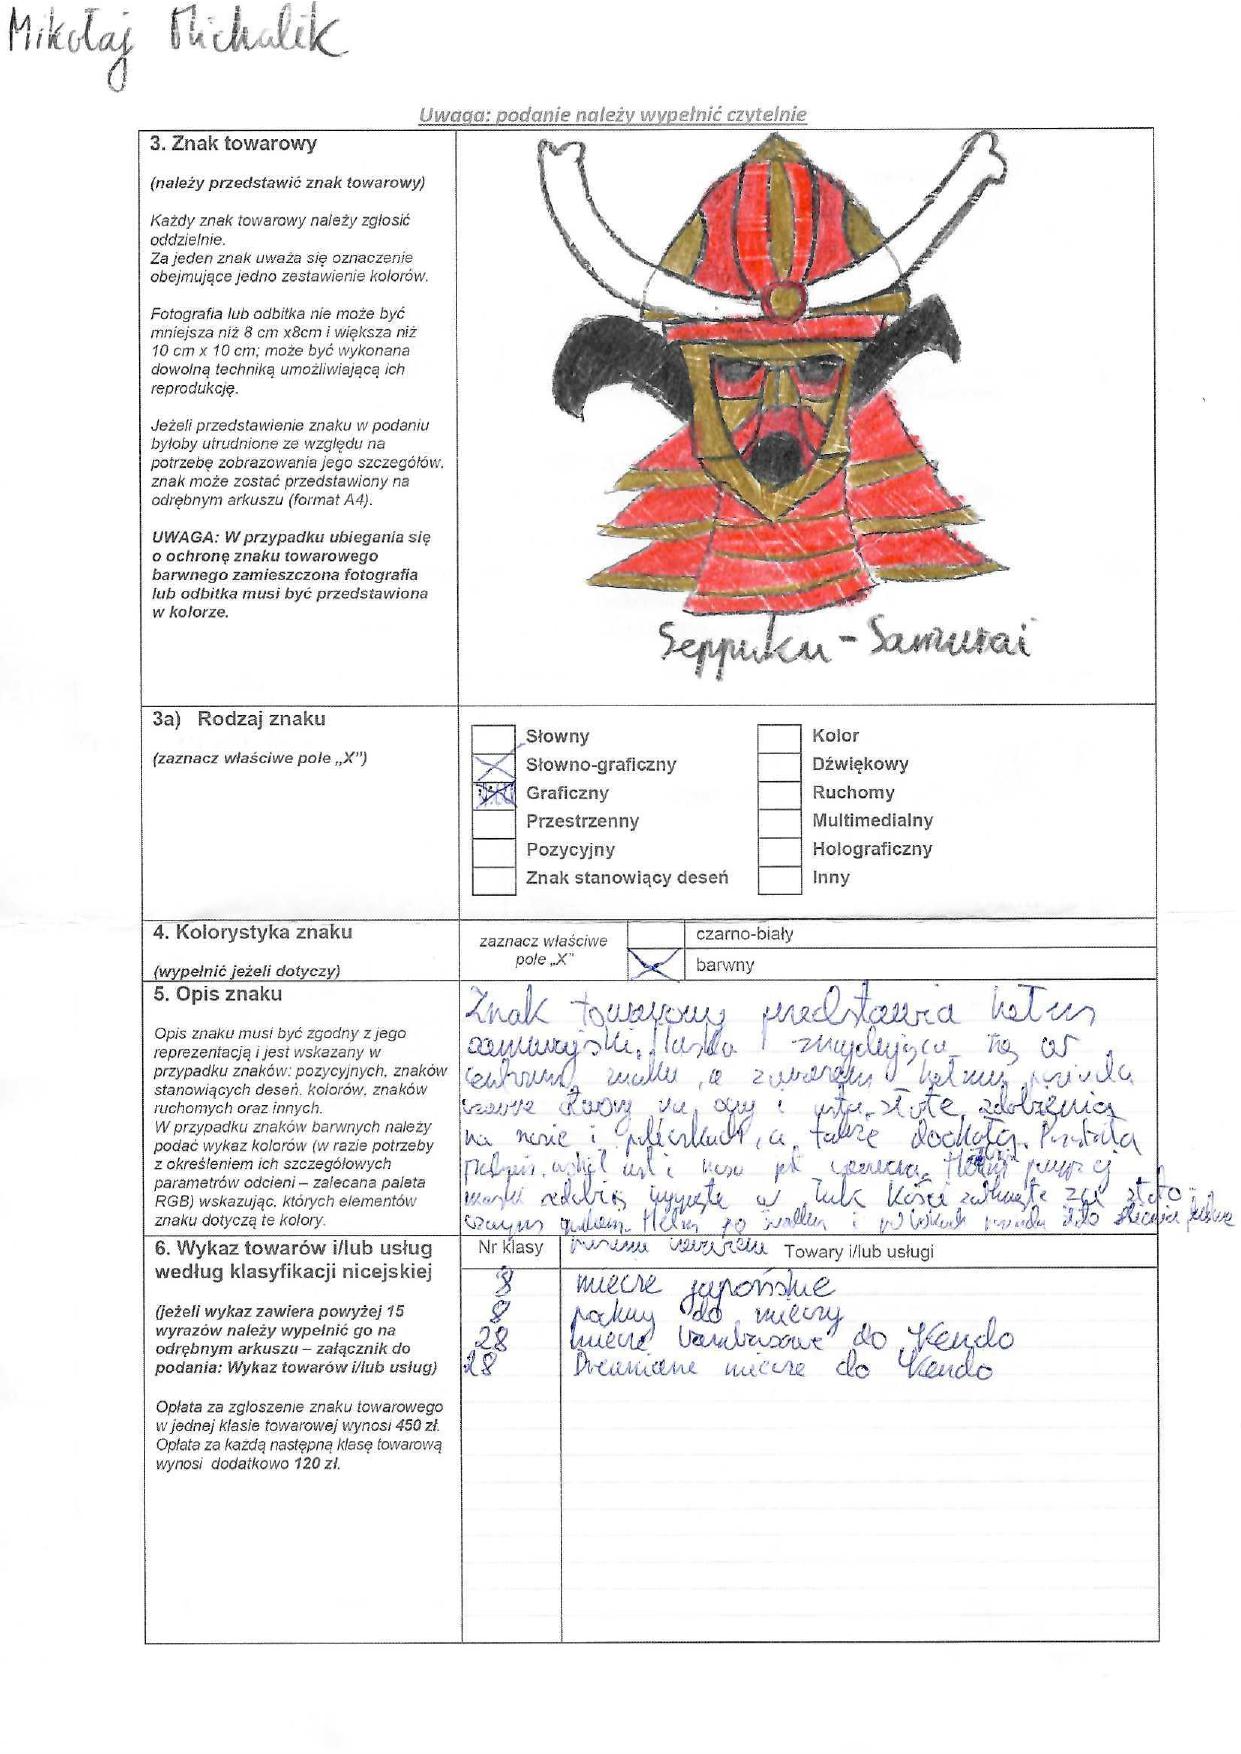 Mikołaj Michalik
Uwaga: podanie należy wypełnić czytelnie
3. Znak towarowy
(należy przedstawić znak towarowy)
Każdy znak towarowy należy zgłosić
oddzielnie.
Za jeden znak uważa się oznaczenie
obejmujące jedno zestawienie kolorów.
Fotografia lub odbitka nie może być
mniejsza niż 8 cm x8cm i większa niż
10 cm x 10 cm; może być wykonana
dowolną techniką umożliwiającą ich
reprodukcję.
Jeżeli przedstawienie znaku w podaniu
byłoby utrudnione ze względu na
potrzebę zobrazowania jego szczegółów,
znak może zostać przedstawiony na
odrębnym arkuszu (format A4).
UWAGA: W przypadku ubiegania się
o ochronę znaku towarowego
barwnego zamieszczona fotografia
lub odbitka musi być przedstawiona
w kolorze.
Seppuku - Samurai
3a) Rodzaj znaku
(zaznacz właściwe pole „X")
Słowny
Słowno-graficzny
Graficzny
Przestrzenny
Pozycyjny
Znak stanowiący deseń
Kolor
Dźwiękowy
Ruchomy
Multimedialny
Holograficzny
Inny
4. Kolorystyka znaku
(wypełnić jeżeli dotyczy)
zaznacz właściwe
pole „X"
czarno-biały
barwny
5. Opis znaku
Opis znaku musi być zgodny z jego
reprezentacją i jest wskazany w
przypadku znaków: pozycyjnych, znaków
stanowiących deseń, kolorów, znaków
ruchomych oraz innych.
W przypadku znaków barwnych należy
podać wykaz kolorów (w razie potrzeby
z określeniem ich szczegółowych
parametrów odcieni – zalecana paleta
RGB) wskazując, których elementów
znaku dotyczą te kolory.
Znak towarowy przedstawia hełm
samurajski. Maska znajdująca się w
centrum znaku, a zarazem hełmu, posiada
czarne otwory na oczy i usta, złote zdobienia
na nosie i policzkach, a także dookoła. Pozostała
i nosa jest czerwona. Hełm
maski zdobią wygięte w łuk kości
czarnym Hełm po i
6. Wykaz towarów i/lub usług
według klasyfikacji nicejskiej
(jeżeli wykaz zawiera powyżej 15
wyrazów należy wypełnić go na
odrębnym arkuszu – załącznik do
podania: Wykaz towarów i/lub usług)
Opłata za zgłoszenie znaku towarowego
w jednej klasie towarowej wynosi 450 zł.
Opłata za każdą następną klasę towarową
wynosi dodatkowo 120 zł.
Nr klasy
Towary i/lub usługi
8 miecze japońskie
8 pochwy do mieczy
28 miecze bambusowe do Kendo
28 Drewniane miecze do Kendo